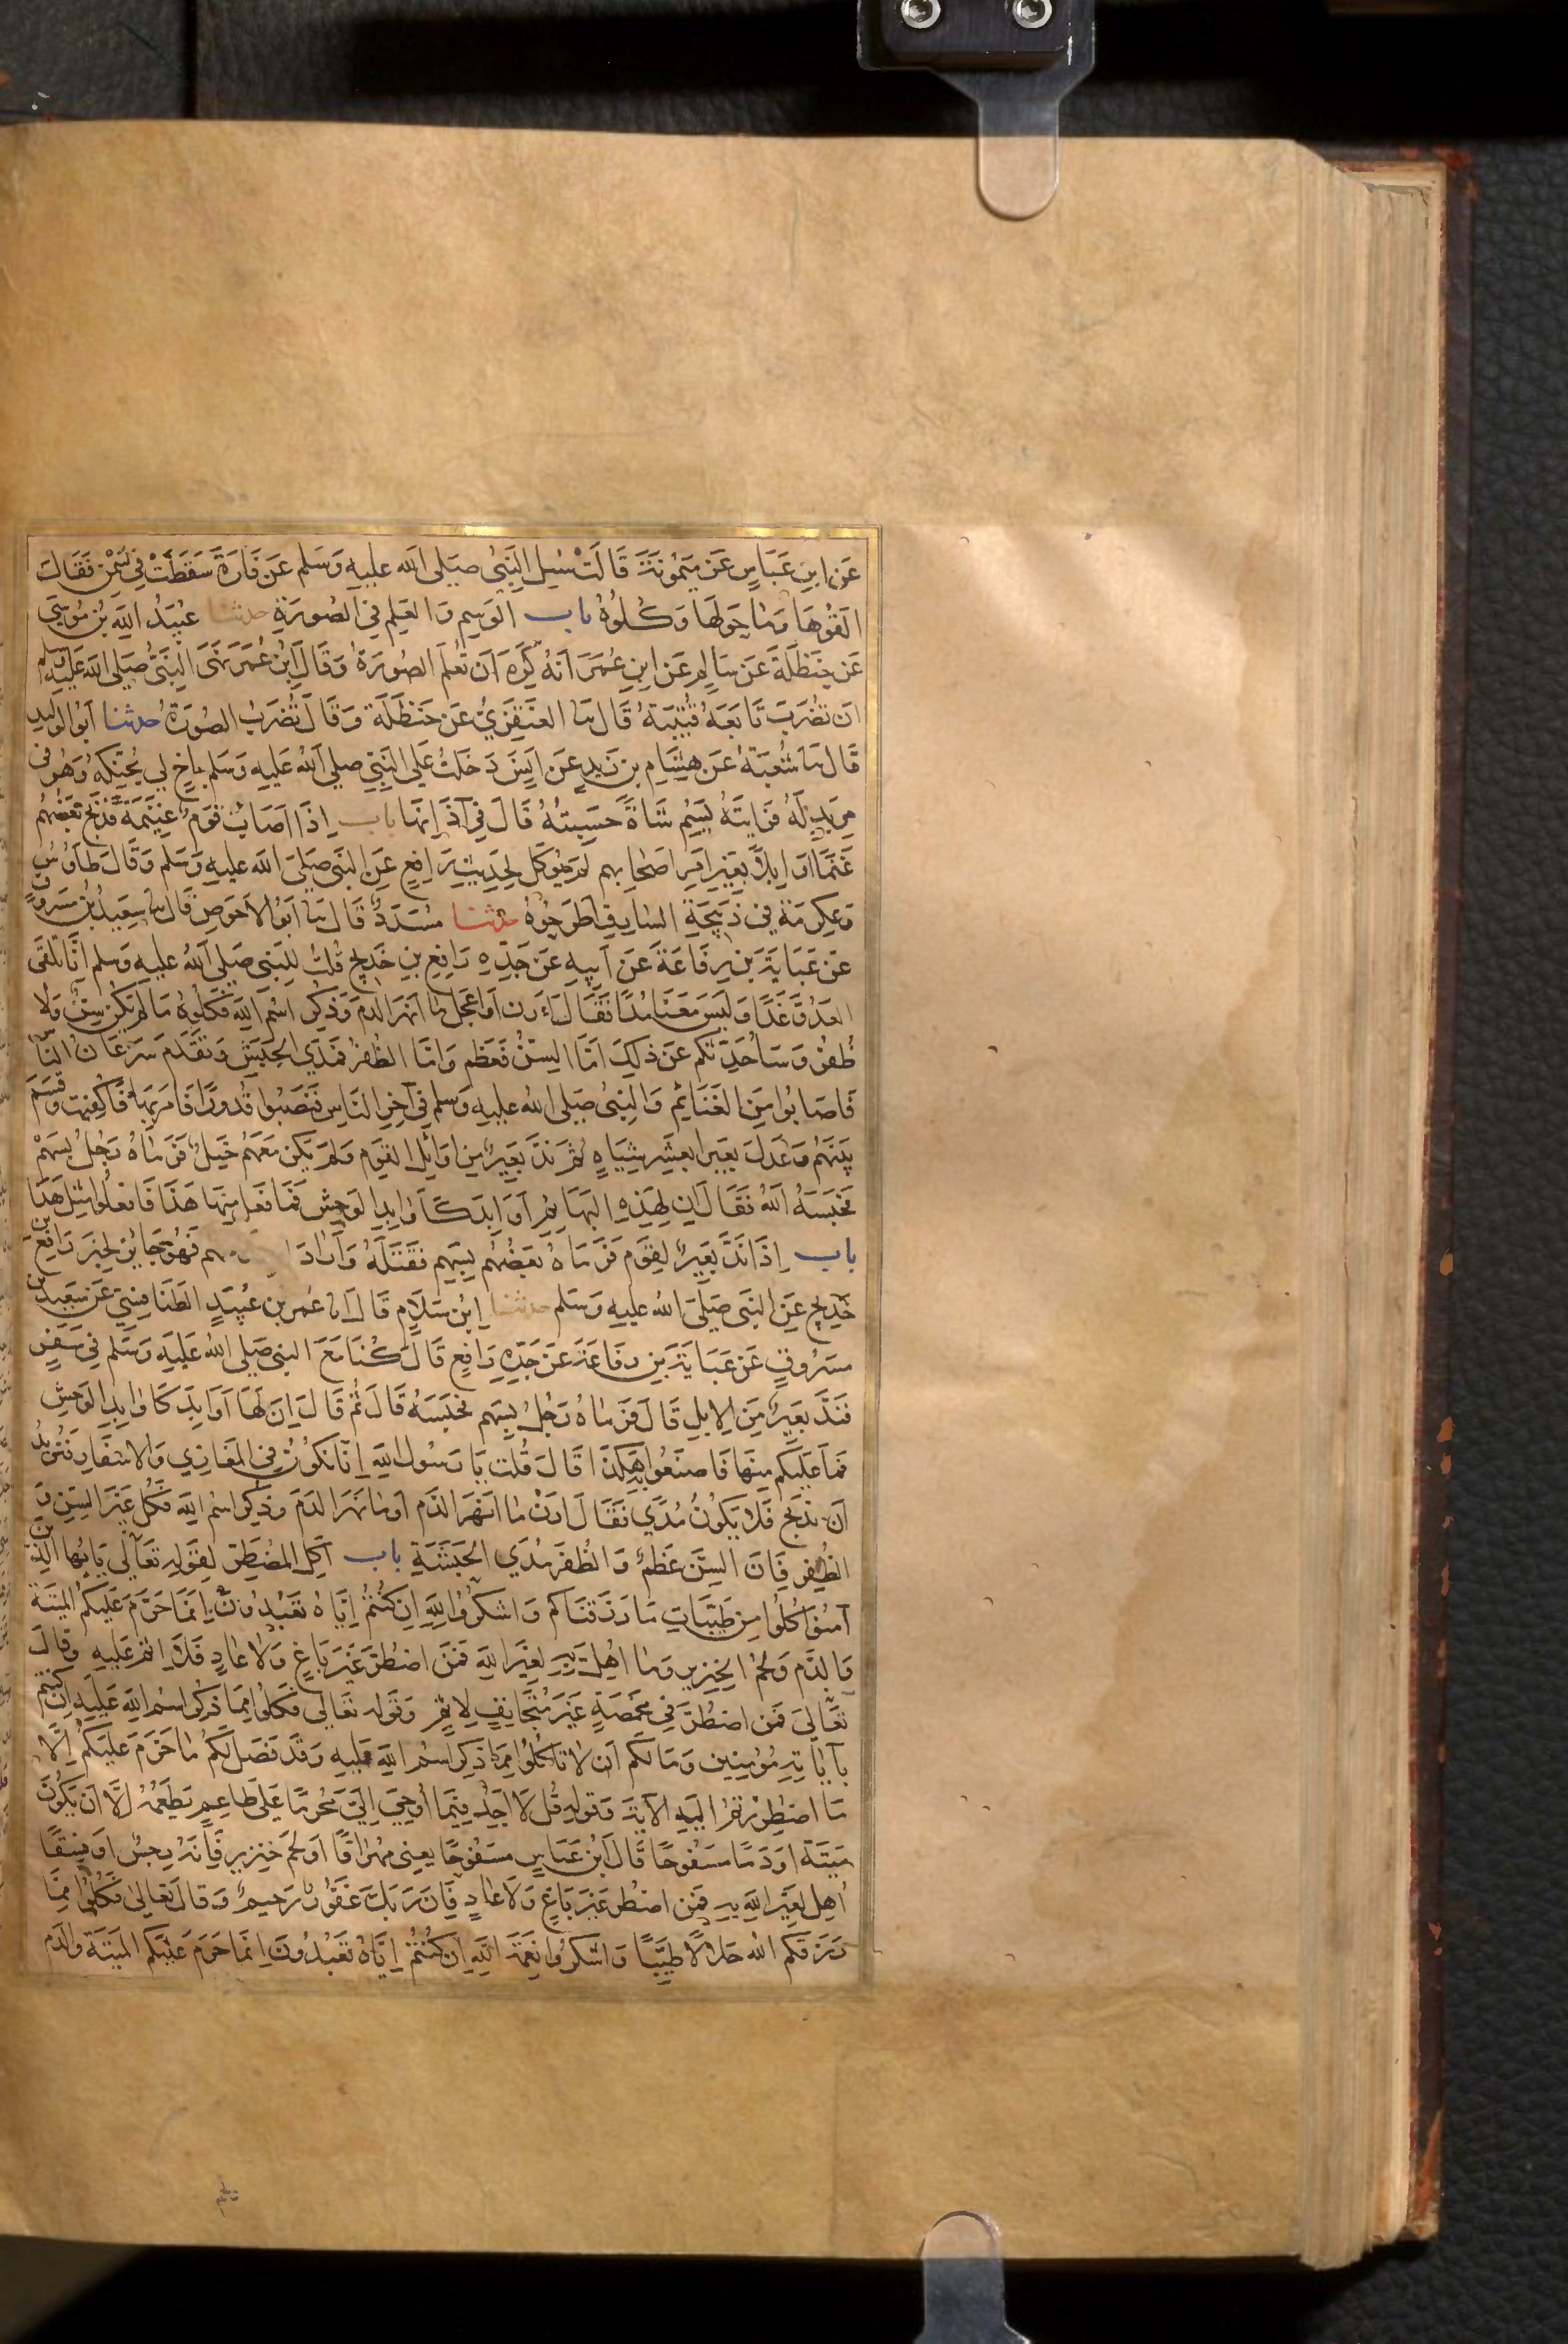 عَن ابنِ عَبَاسٍ عَن مَيمُونَةَ قَالَتْ سُئِل النَبِىُ صَلى الله عليهِ وَسَلم عَن فَارَةٍ سَقَطَتْ فِى سَمْنٍ فَقَالَ
القُوهَا وَمَا حَولَهَا وَكُلُوهُ باب الوَسِمِ وَالعَلَمِ فِى الصُورَةِ حدثنا عُبَيدُ اللهِ بنُ مُوسَى
عَن حَنظَلَةَ عَن سَالِمٍ عَن ابنِ عُمَرَ انَهُ كَرِهَ ان تُعْلَم الصُورَةُ وَقَالَ ابنُ عُمَرَ نَهَى النَبىُّ صَلى الله عَلَيهِ وسلم
ان تضرَبَ تَابَعَهُ قُتَيبَةُ قَال نَا العَنقَزِيُّ عَن حَنظَلَة وَقَالَ تُضرَبُ الصُورَةُ حدثنا ابُو الوَليدِ
قَال نَا شُعبَةُ عَن هِشَامِ بنِ زَيدٍ عَن انَسٍ دَخَلتُ عَلى النَبِيّ صلى الله عَليهِ وَسَلم باخٍ لى يُحَنِكهُ وَهُو فى
مِربَدٍ لَهُ فَرَايتَهُ يَسِمُ شَاةً حَسِبتُهُ قَالَ فى آذَانِهَا باب اذَا اصَابَ قَومٌ غَنِيمَةً فَذَبَحَ بَعضُهُم
غَنَمًا او ابلًا بغَيرِ امرِ اصحَابِهم لَم يُوكَل لحِدِيثِ رَافِعٍ عَنِ النَبى صَلىَ الله عليهِ وَسَلم وَقَالَ طَاوُسٌ
وَعِكرمَة فى ذَبيحَةِ السَارِقِ اطرَحُوهُ حدثنا مُسَدَدٌ قَال نَا ابُو الاحوَصِ قَال نَا سَعِيدُ بنُ مَسرُوقٍ
عَن عَبَايَةَ بنِ رِفَاعَةَ عَن ابيهِ عَن جَدِّهِ رَافِعِ بنِ خَدِيجٍ قُلتُ للِنَبى صَلى الله عليهِ وَسَلم انَّا نَلقَى
العَدُوَّ غَدًا وَلَيسَ مَعَنَا مُدًا فَقَالَ ارِن اوَاعجَل مَا انهَرَ الدَمَ وَذُكِرَ اسْمُ اللهِ فَكُلُوهُ مَا لم يَكُن سِنٌّ وَلا
ظُفُرٌ وَسَاُحَدِّثكُم عَن ذلِكَ امَّا السِنُّ فَعَظم وَامَّا الظُفرُ فَمُدَى الحَبَش وَتَقَدَم سَرَعَانُ النَّاسِ
فَاصَابُوا مِنَ الغَنَائِم وَالنَبىُ صَلى الله عليهِ وسلم فى آخِرِ النَاسِ فَنَصَبُوا قُدورًا فَامَر بِهَا فَاُكفِئت وَقَسَم
بَينَهُم وَعَدَلَ بَعِيرا بعَشرِ شِيَاهٍ ثم نَدَّ بَعِيرٌ مِن اوَائِل القَوم وَلَم يَكن مَعَهُم خَيلٌ فَرمَاهُ رَجُلٌ بسَهمٍ
فحَبَسَهُ اللهُ فَقَالَ ان لِهَذِهِ البَهَائِم اوَابدَ كَاوَابِدِ الوَحشِ فَمَا فَعَل مِنهَا هَذَا فَافعَلُوا مِثل هَذَا
باب اِذَا نَدَّ بَعِيرٌ لِقَومٍ فَرَمَاهُ بَعضُهُم بِسَهمٍ فَقَتَلَهُ وَاَرَادَ ا فَهُو جَائِزٌ لِخبَرِ رَافِعِ بنِ
خَدِيجٍ عَنِ النَبى صَلىَ الله عليهِ وَسَلم حدثنا ابنُ سَلَامٍ قَالَ انا عُمر بن عُبَيدٍ الطَنَافِسِيّ عَن سَعيدِ بن
مَسرُوقٍ عَن عَبَايَةَ بنِ رِفاعَةَ عَن جَدِهِ رَافِعٍ قَالَ كُنَا مَعَ النبىِ صَلى الله عَلَيهِ وَسَلم فى سَفَرٍ
فَنَدَّ بَعِيرٌ مِنَ الابلِ قَالَ فَرمَاهُ رَجُلٌ بِسَهمٍ فحَبَسَهُ قَالَ ثُمَ قَالَ اِنَ لَهَا اوَابِدَ كَاوَابِدِ الوَحشِ
فَمَا غَلَبَكم مِنهَا فَاصنَعُوا بِه هَكَذَا قَالَ قُلتُ يَا رَسُولَ اللهِ اِنَّا نَكُونُ فى المغَازِي وَالاسفَارِ فَنُريدُ
اَن نَذبَحَ فَلا يَكُونُ مُدًى فَقَالَ ارِنْ مَا انهَرَ الدَم او مَا نَهَرَ الدَم وَذُكِرَ اسْم اللهِ فَكُل غَيرَ السِنِ وَ
الظُفُرِ فَاِنَ السِنَّ عَظمٌ وَالظُفرَ مُدَى الحَبَشَةِ باب اَكل المُضطَرِّ لِقَولهِ تَعَالى يَايُّهَا الذِينَ
آمنُوا كُلُوا مِن طَيّبَاتِ مَا رَزَقنَاكُم وَاشكُرُوا للهِ اِن كُنتُم ايَّاهُ تَعبُدُونَ اِنَمَا حَرَّمَ عَلَيكُم المَيتَةَ
وَالدَّم وَلَحمَ الخِنزِيرِ وَمَا اُهِلَّ بِهِ لِغَيرِ اللهِ فَمَن اضطُرَّ غَيرَ بَاغٍ وَلا عَادٍ فَلَا اثمَ عَلَيهِ وقَالَ
تَعَالَى فَمَن اضطُرَّ فِى مَخمَصَةٍ غَيرَ مُتَجَانِفٍ لِاثمٍ وَقَوله تَعَالى فَكُلُوا مِمَا ذُكِرَ اسمُ اللهِ عَلَيهِ اِن كُنتُم
بآيَاتِهِ مُؤمِنِين وَمَا لَكُم اَن لَا تَاكُلُوا مِمَّا ذُكِرَ اسْمُ اللهِ عَليهِ وَقَد فَصَلَ لَكُم مَا حَرَّمَ عَلَيكُم الَّا
مَا اضطُرِرْتُم اليَهِ الآيَةَ وَقَولهِ قُل لَا اَجِدُ فِيمَا اُوحِيَ اِلَيَّ مُحَرَّمًا عَلَى طَاعِمٍ يَطعَمُهُ اِلَّا اَن يَكُونَ
مَيتَة اوَ دَمًا مَسفُوحًا قَالَ ابنُ عَبَاسٍ مَسفُوحًا يعنِى مُهرَاقًا اوَ لَحمَ خِنزِيرٍ فَاِنَهُ رِجسٌ اَو فِسقًا
اُهِل لِغَيرِ اللهِ بهِ فَمَن اضطُر غَيرَ بَاغٍ وَلَا عَادٍ فَاِنَ رَبَكَ غَفُورٌ رَحيمٌ وَقَالَ تَعَالى فَكُلُوا مِمَّا
رَزَقَكُم الله حَلَالًا طَيّبًا وَاشكُرُوا نِعمَةَ اللهِ اِن كُنتُم اِيَّاهُ تَعبُدُونَ اِنَمَا حَرمَ عَلَيكُم المَيتَةَ وَالدَم